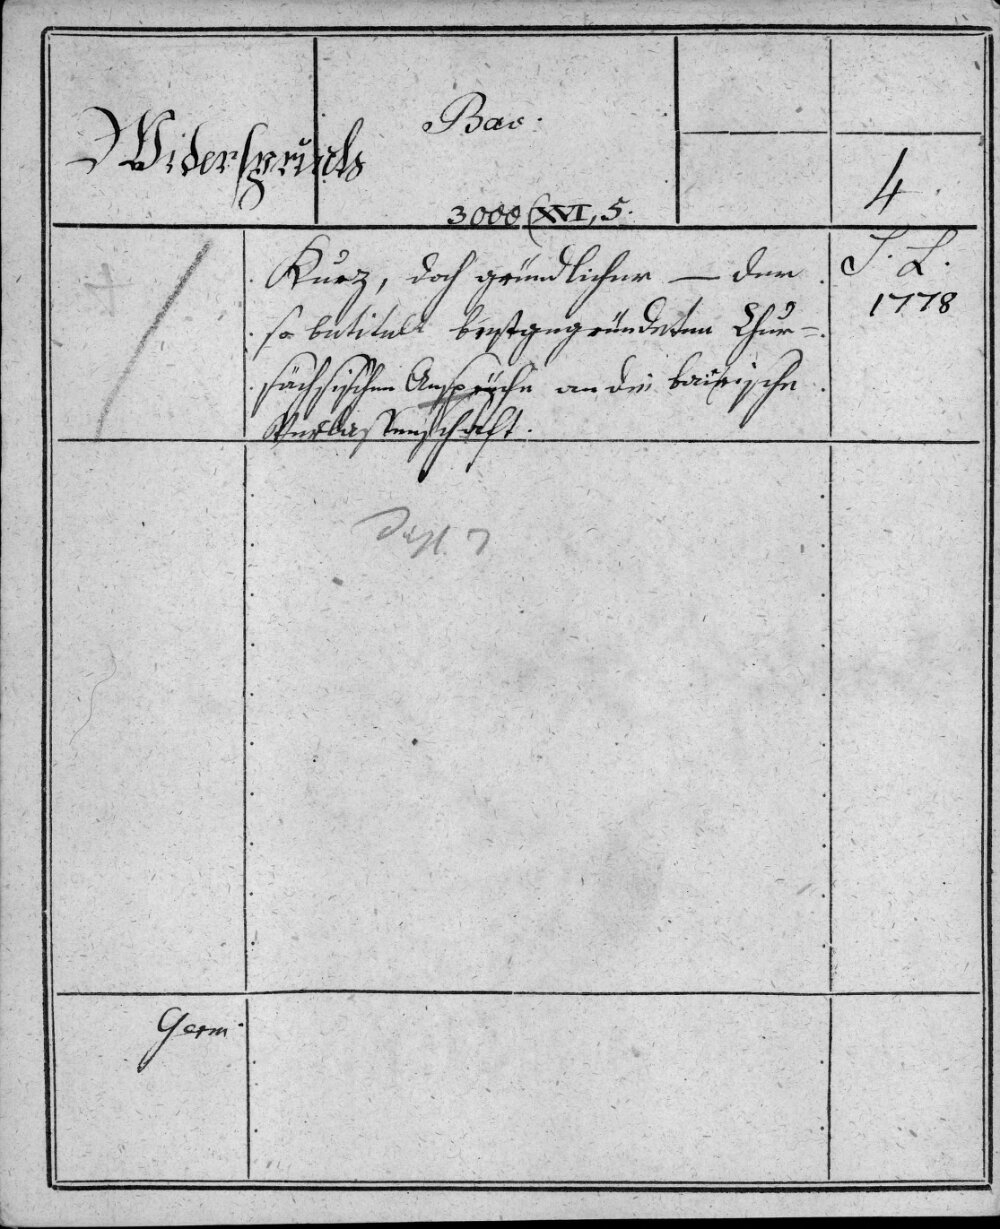 Widerspruch
Bav.
3000 (XVI, 5.
4
Kurz, doch gründlicher — der
so betitelt bestgegründeten Chur=
sächsischen Ansprüche an die bairische
Verlassenschaft.
S. L.
1778
Germ.